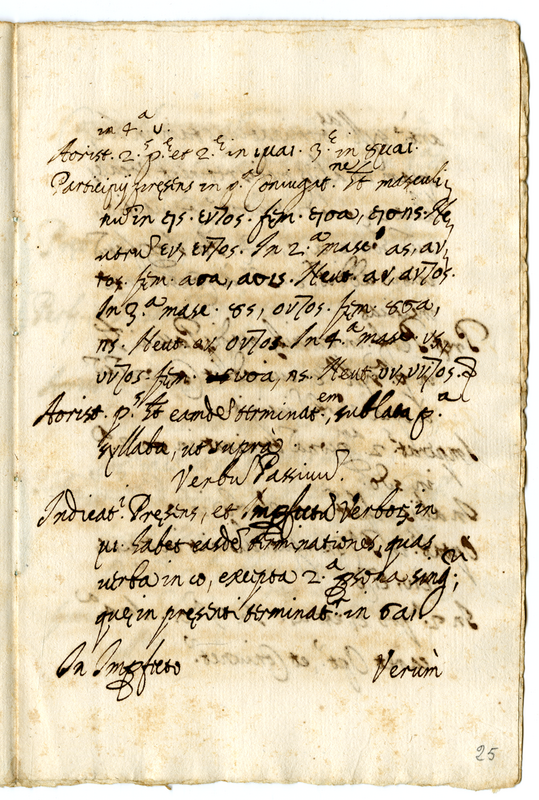 in 4.ª υ.
Aorist. 2.ˢ p.ᵉ et 2.ᵉ in ιμαι. 3.ᵉ in ȣμαι.
Participij pręsens in p.ª Coniugat.ⁿᵉ Ht masculi
nũ in εις. εντος. fęm. εισα, εισης. Ne
utrũ εν, εντος. In 2.ª masc. ας, αν
τος fęm. ασα, ασης. Neut. αν, αντος.
In 3.ª masc. ȣς, οντος. fęm. ȣσα,
ης. Neut. ον. οντος. In 4.ª masc. υς
υντος. fęm. υσα, ης. Neut. υν. υντος.
Aorist. p.ˢ Ht eandẽ terminat.ᵉᵐ, sublata p.ª
syllaba, ut suprà
Verbũ Passivũ.
Indicat.ⁱ Pręsens, et Impfectũ Verboꝝ in
μι. habet easdẽ terminationes, quas
verba in ω, excepta 2.ª psona sing.
quę in pręsenti terminat.ʳ in σαι
In Impfecto Verùm
25